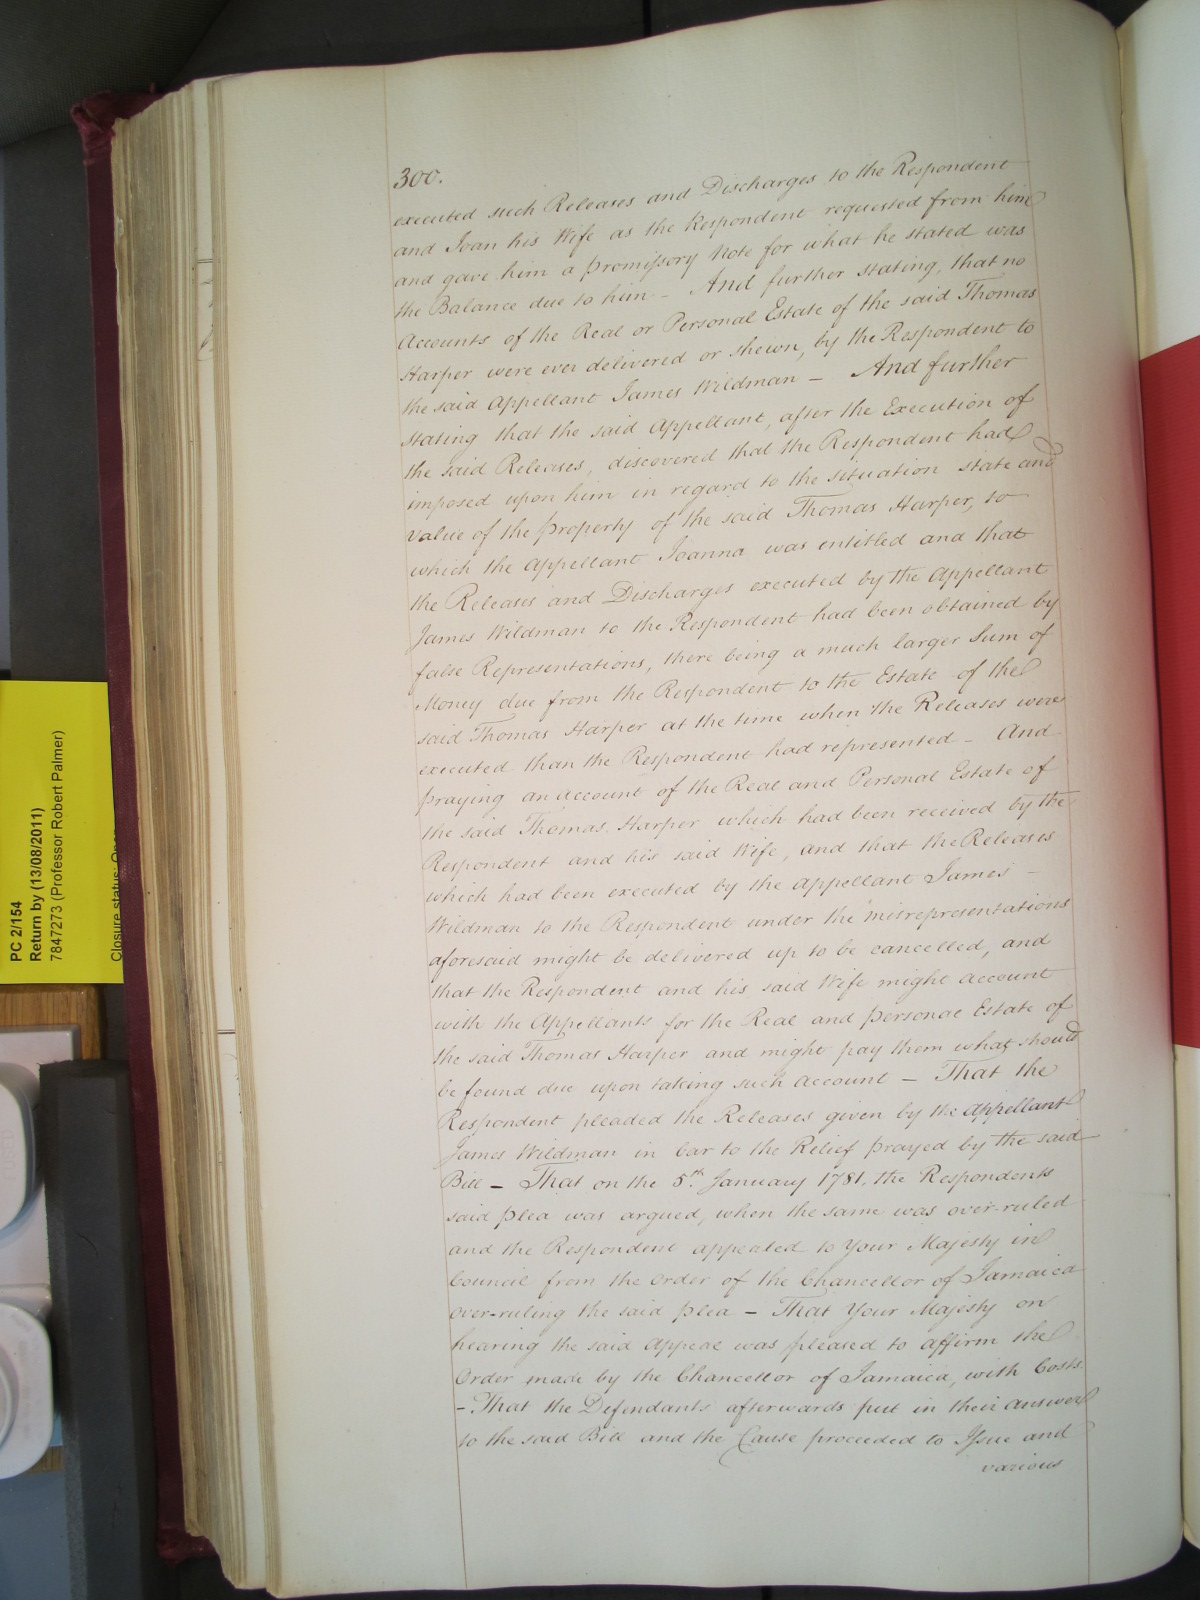 300.
executed such Releases and Discharges to the Respondent
and Joan his Wife as the Respondent requested from him
and gave him a promissory Note for what he stated was
the Balance due to him - And further stating, that no
Accounts of the Real or Personal Estate of the said Thomas
Harper were ever delivered or shewn, by the Respondent to
the said Appellant James Wildman - And further
stating that the said Appellant, after the Execution of
the said Releases, discovered that the Respondent had
imposed upon him in regard to the situation state and
value of the property of the said Thomas Harper, to
which the Appellant Joanna was entitled and that
the Releases and Discharges executed by the Appellant
James Wildman to the Respondent had been obtained by
false Representations, there being a much larger Sum of
Money due from the Respondent to the Estate of the
said Thomas Harper at the time when the Releases were
executed than the Respondent had represented - And
praying an Account of the Real and Personal Estate of
the said Thomas Harper which had been received by the
Respondent and his said Wife, and that the Releases
which had been executed by the Appellant James -
Wildman to the Respondent under the misrepresentations
aforesaid might be delivered up to be cancelled, and
that the Respondent and his said Wife might account
with the Appellants for the Real and personal Estate of
the said Thomas Harper and might pay them what should
be found due upon taking such Account - That the
Respondent pleaded the Releases given by the Appellant
James Wildman in bar to the Relief prayed by the said
Bill - That on the 5th. January 1781, the Respondents
said plea was argued, when the same was over-ruled
and the Respondent appealed to Your Majesty in
Council from the Order of the Chancellor of Jamaica
over-ruling the said plea - That Your Majesty on
hearing the said Appeal was pleased to affirm the
Order made by the Chancellor of Jamaica, with Costs.
- That the Defendants afterwards put in their answer
to the said Bill and the Cause proceeded to Issue and
various
PC 2/154
Return by (13/08/2011)
7847273 (Professor Robert Palmer)
Closure status:
FUSED